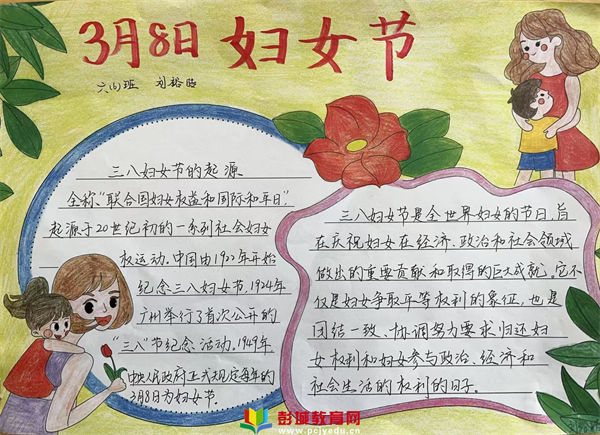 3月8日 妇女节
六(6)班 刘裕皓
三八妇女节的起源
全称“联合国妇女权益和国际和平日”,
起源于20世纪初的一系列社会妇女
权运动,中国由1922年开始
纪念三八妇女节,1924年
广州举行了首次公开的
“三八”节纪念活动,1949年
中央人民政府正式规定每年的
3月8日为妇女节.
三八妇女节是全世界妇女的节日,旨
在庆祝妇女在经济、政治和社会领域
做出的重要贡献和取得的巨大成就,它不
仅是妇女争取平等权利的象征,也是
团结一致、协调努力要求归还妇
女权利和妇女参与政治、经济和
社会生活的权利的日子.
彭城教育网
www.pcjyedu.cn